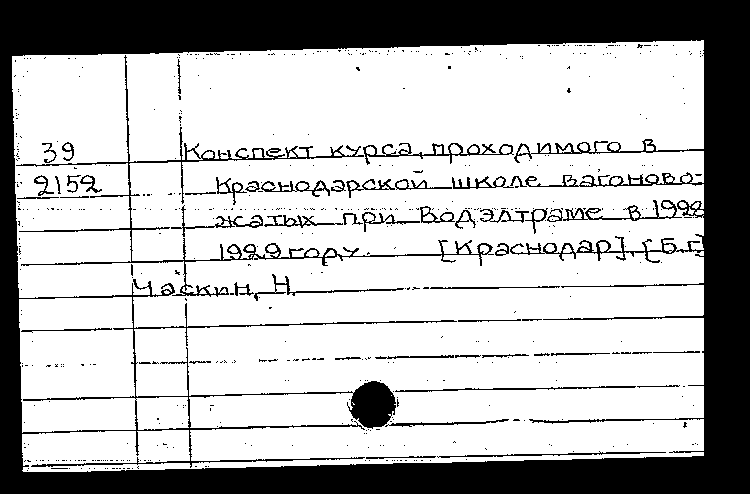 39 Конспект курса, проходимого в
2152 Краснодарской школе вагоново-
жатых при Водэлтраме в 1928
1929 году. [Краснодар], [Б.г]
Часкин, Н.